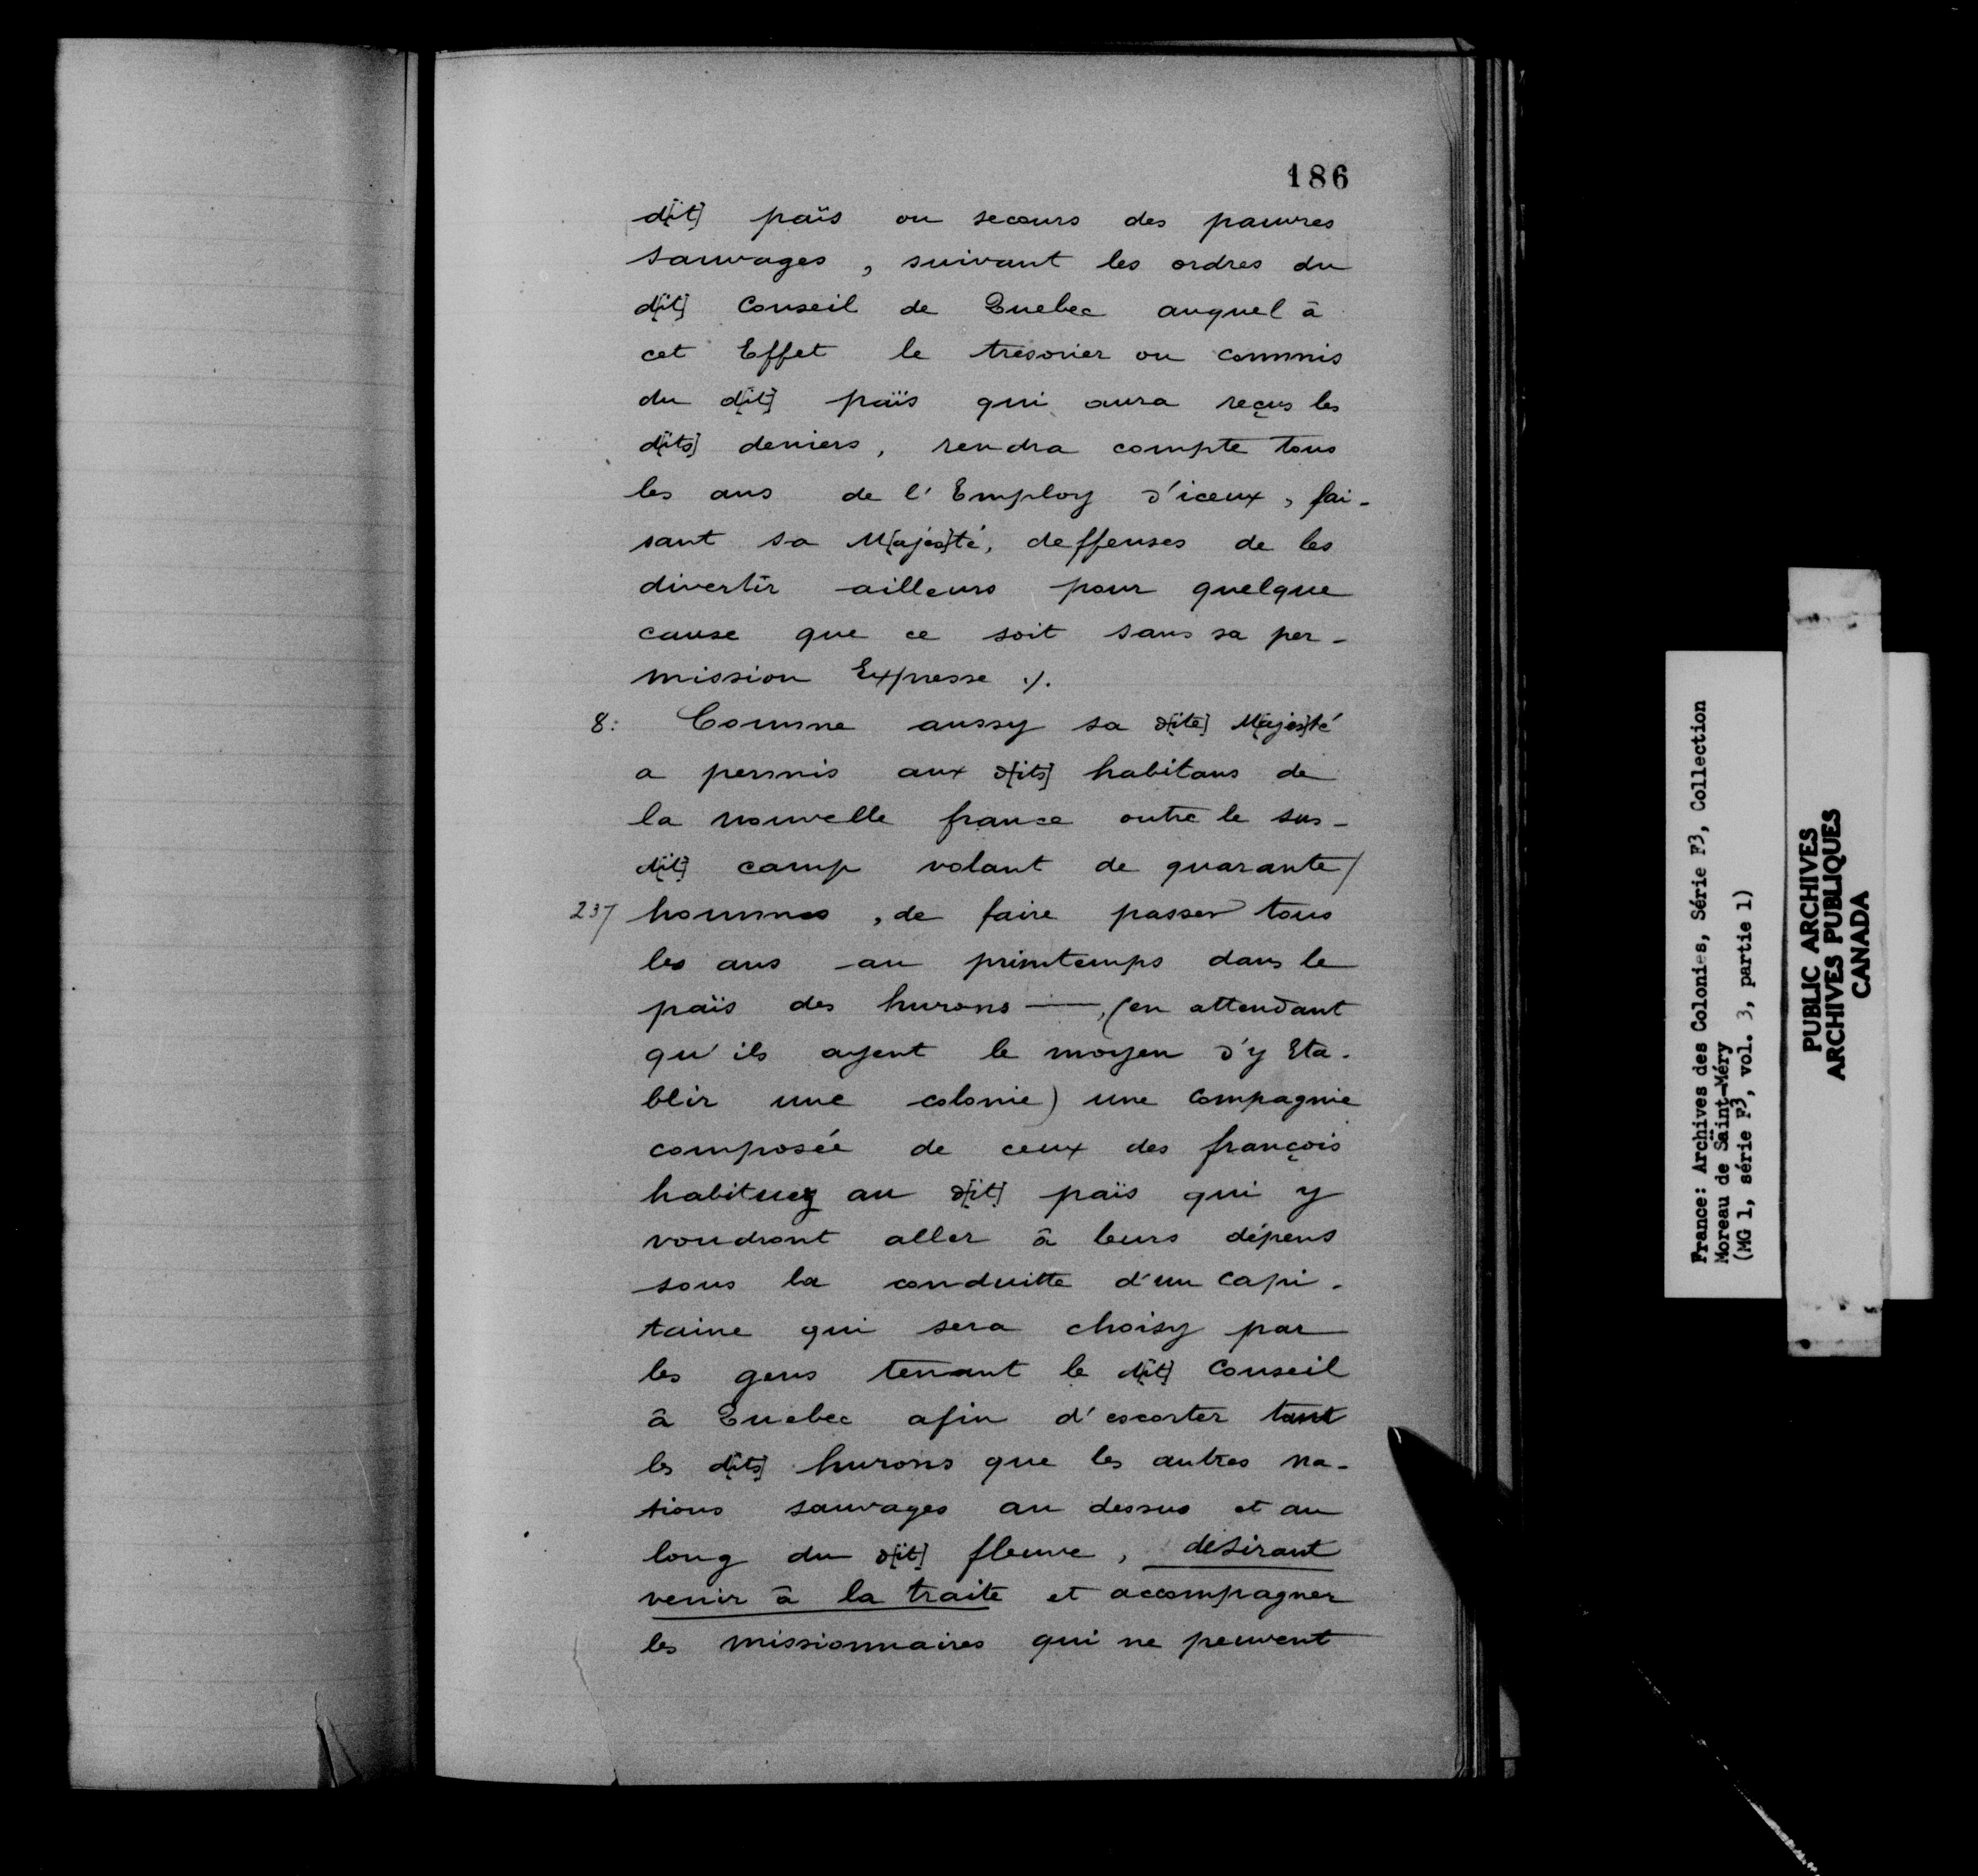 186
d[it] païs ou secours des pauvres
sauvages, suivant les ordres du
d[it] Conseil de Quebec auquel à
cet Effet le trésorier ou commis
du d[it] païs qui aura reçus les
d[its] deniers, rendra compte tous
les ans de l'Employ d'iceux, fai-
sant sa M[ajes]té, deffenses de les
divertir ailleurs pour quelque
cause que ce soit sans sa per-
mission Expresse ./.
8: Comme aussy sa d[ite] M[ajes]té
a permis aux d[its] habitans de
la nouvelle france outre le sus-
d[it] camp volant de quarante/
237 hommes, de faire passer tous
les ans au printemps dans le
païs des hurons —, (en attendant
qu'ils ayent le moyen d'y Eta-
blir une colonie) une compagnie
composée de ceux des françois
habituez au d[it] païs qui y
voudront aller à leurs dépens
sous la conduitte d'un capi-
taine qui sera choisy par
les gens tenant le d[it] Conseil
à Quebec afin d'escorter tant
les d[its] hurons que les autres na-
tions sauvages au dessus et au
long du d[it] fleuve, désirant
venir à la traite et accompagner
les missionnaires qui ne peuvent
France: Archives des Colonies, Série F3, Collection
Moreau de Saint-Méry
(MG 1, série F3, vol. 3, partie 1)
PUBLIC ARCHIVES
ARCHIVES PUBLIQUES
CANADA